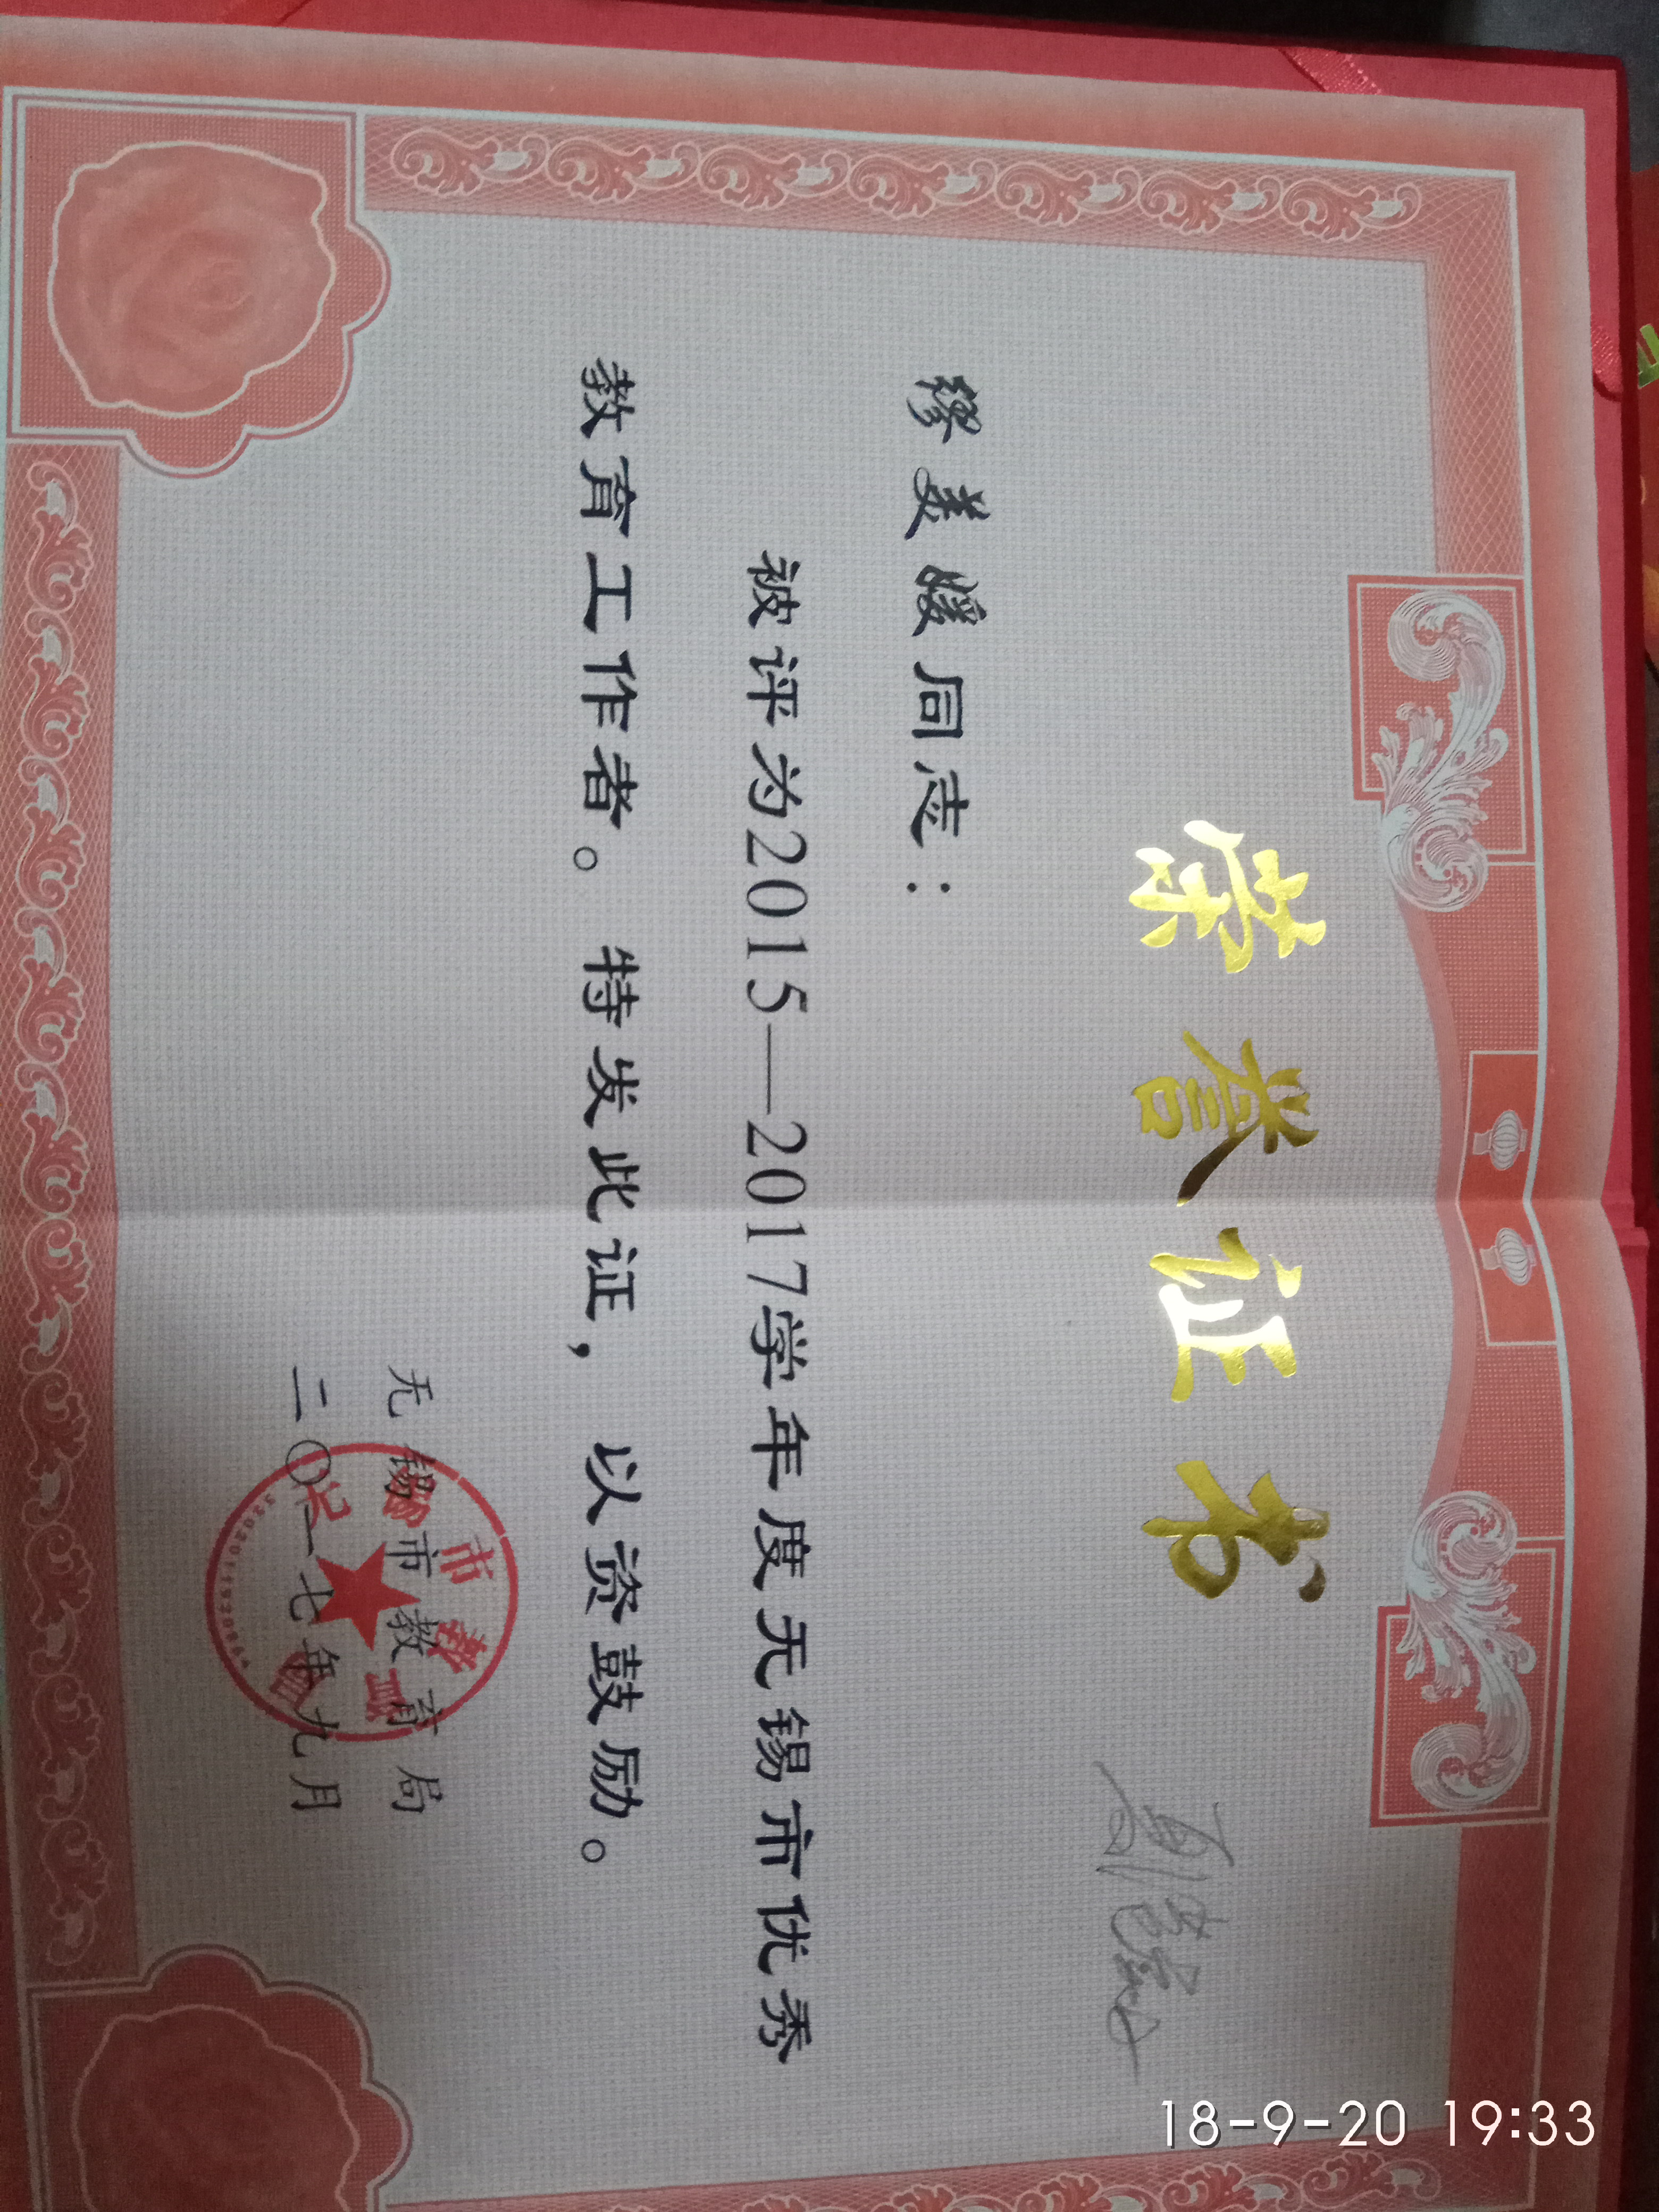 荣誉证书
缪美媛同志：
被评为2015—2017学年度无锡市优秀
教育工作者。特发此证，以资鼓励。
无锡市教育局
二〇一七年九月
无锡市教育局
18-9-20 19:33